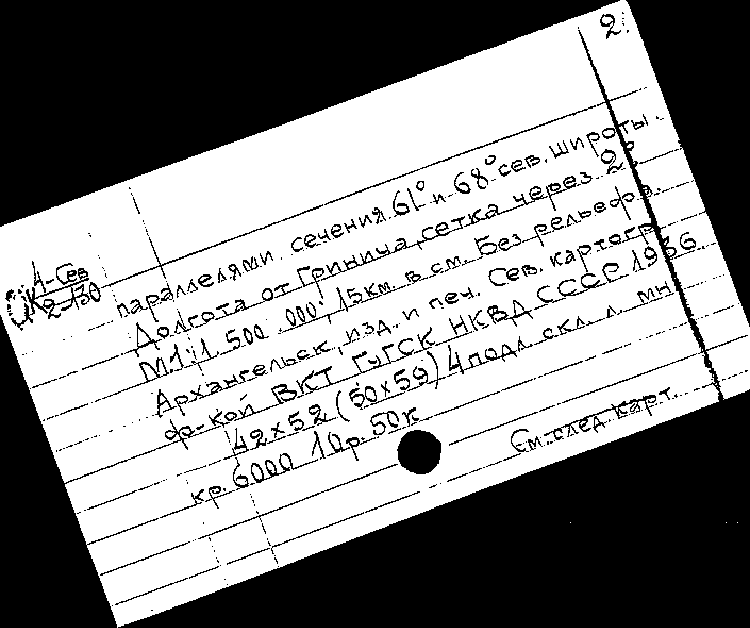 2.
А-Сев
К2-130
параллелями сечения 61° и 68° сев. широты.
Долгота от Гринича, сетка через 2°
М1:1.500.000; 15км. в см. Без рельефа.
Архангельск, изд. и печ. Сев. картогр.
ф-кой ВКТ ГУГСК НКВД СССР. 1936
42х52 (50х59) 4 подл. скл. л. мн
кр. 6000 10р. 50к
См. след. карт.